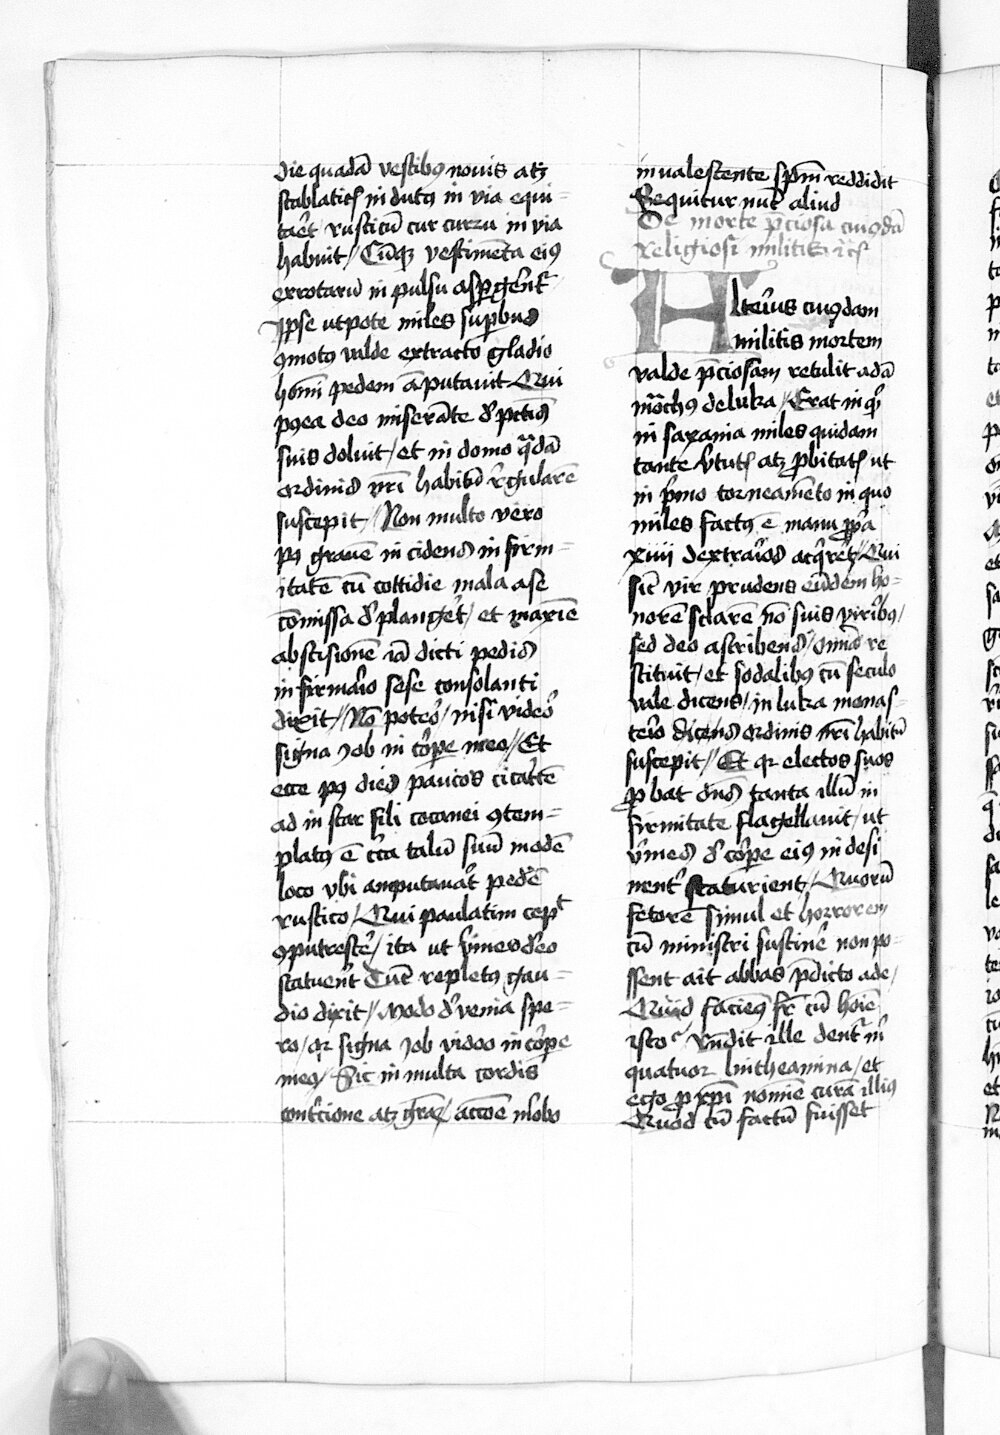 die quadā vestibꝯ novis atꝫ
scablatis indutꝯ in via equi-
tar̄t rusticū cur currū in via
habuit // Cūqꝫ vestimēta eiꝯ
ex rotarū inpulsu asꝑgerēt᷑
Ipse utpote miles suꝑbus
ꝯmotꝯ valde extracto gladio
homī pedem āputavit Qui
pꝯea deo miserāte d̓ pctīs
suis doluit / et in domo qͣdā
ordinis nrī habitū r̓gularē
suscepit // Non multo vero
pꝯ gravē incidens infirm-
itatē cū cottidie mala a se
cōmissa d̓planger̄t / et maxīe
abscisionē iā dicti pedis
infirmario sese consolanti
dixit // Nō poter̄o / nisi videro̓
signa Iob in cor̓pe meo // Et
ecce pꝯ dies paucos cicat̓cē
ad instar fili cocanei ꝯtem-
platꝯ ē cir̓ca talū suū in eodē
loco ubi amputavat̓ pedē
rustico / Qui paulatim cepͭ
ꝯputrescer̓ / ita ut v̓mes d̓ eo
scatueri̓t Tūc repletꝯ gau-
dio dixit // Modo d̓ venia spe-
ro / qꝛ signa Iob video in cor̓pe
meo / Sic in multa cordis
cont̓cione atꝫ gr̄aꝝ accōe morbo
invalescente sp̄m reddidit
Sequitur nūc aliud
De morte p̄ciosa cuiꝯdā
religiosi militis
Alterius cuiꝯdam
militis mortem
valde p̄ciosam retulit adā
mōchꝯ de luka / Erat inqͥt
in saxania miles quidam
tante v̓tutis atꝫ ꝓbitatis ut
in p̓mo torneamēto in quo
miles factꝯ ē manu ꝓp̓a
xiiii dextrarios acqͥreret // Qui
sic̄ vir prudens eūdem ho-
norē sclarē nō suis viribꝯ /
sed deo ascribens / omīa re
stituit / et sodalibꝯ cū seculo
vale dicens / in luka monas-
terio ordinis nrī habitū
suscepit // Et qꝛ electos suos
ꝓbat dn̄s tanta illū in
firmitate flagellavit / ut
v̓mes d̓ cor̓pe eiꝯ indesi
nent̓ scaturient / Quorū
fetorē simul et horrorem
cū ministri sustiner̓ non po-
ssent ait abbas p̄dicto ade /
Quid faciemꝯ fr̄ cū hoīe
isto ? Rn̄dit ille dent᷑ mͥ
quatuor lintheamina / et
ego ꝓ xp̄i nomīe curā illiꝯ
Quod cū factū fuisset